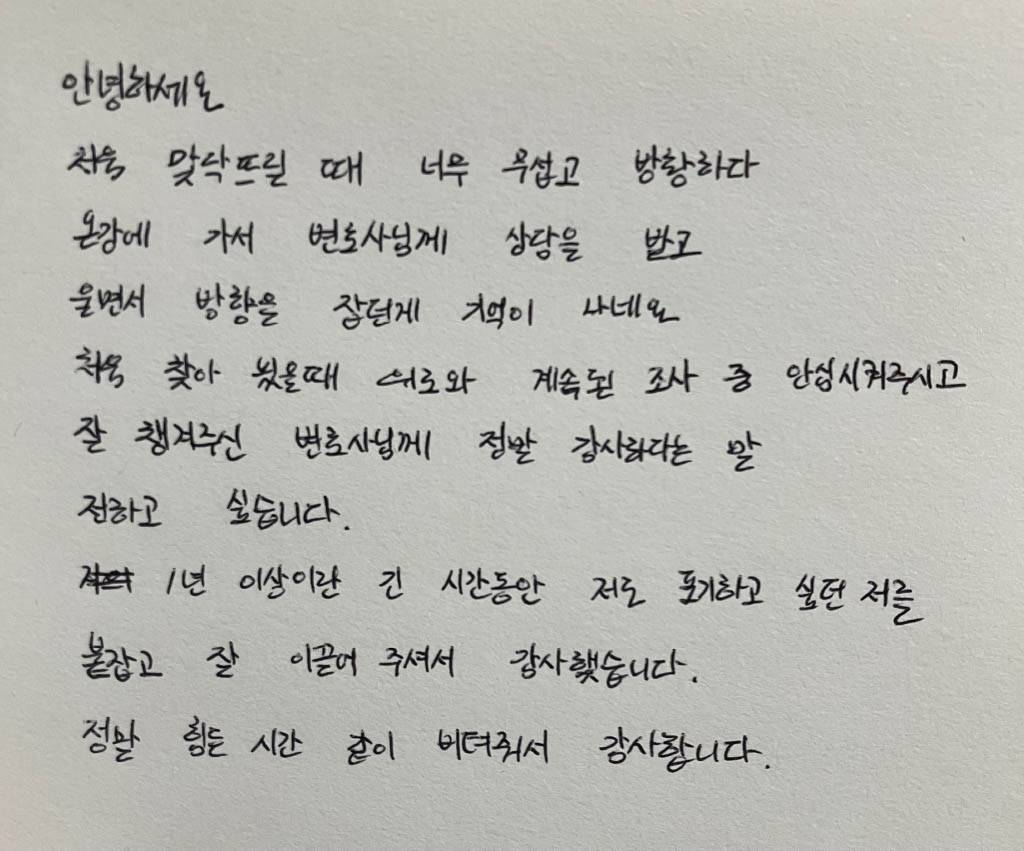 안녕하세요
처음 맞닥뜨릴 때 너무 무섭고 방황하다
온강에 가서 변호사님께 상담을 받고
울면서 방향을 잡던게 기억이 나네요
처음 찾아 뵀을때 위로와 계속된 조사 중 안심시켜주시고
잘 챙겨주신 변호사님께 정말 감사하다는 말
전하고 싶습니다.
1년 이상이란 긴 시간동안 저도 포기하고 싶던 저를
붙잡고 잘 이끌어 주셔서 감사했습니다.
정말 힘든 시간 같이 버텨줘서 감사합니다.